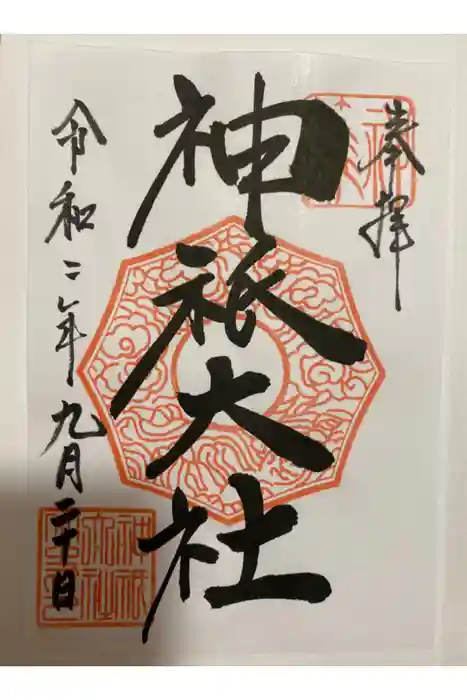 奉拝
神祇大社
令和二年九月二十日